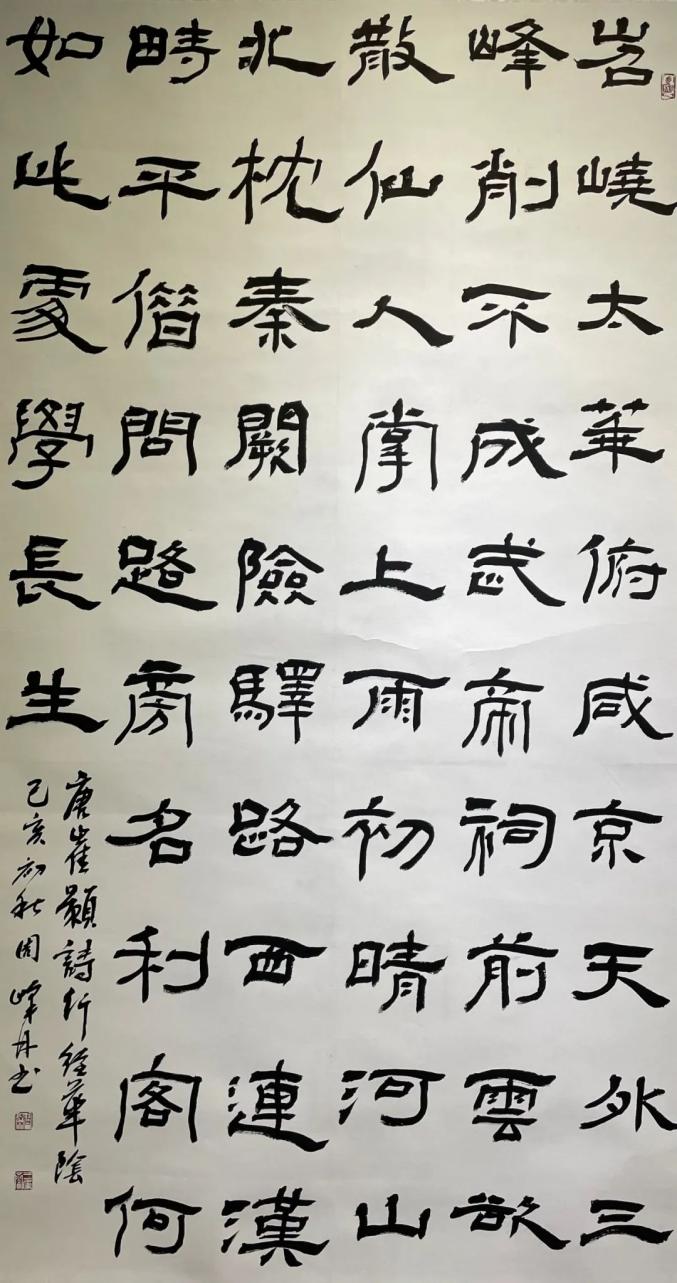 岧嶢太華俯咸京天外三
峰削不成武帝祠前雲欲
散仙人掌上雨初晴河山
北枕秦闕險驛路西連漢
畤平借問路旁名利客何
如此處學長生
唐崔顥詩行經華陰
己亥初秋周峰丹书